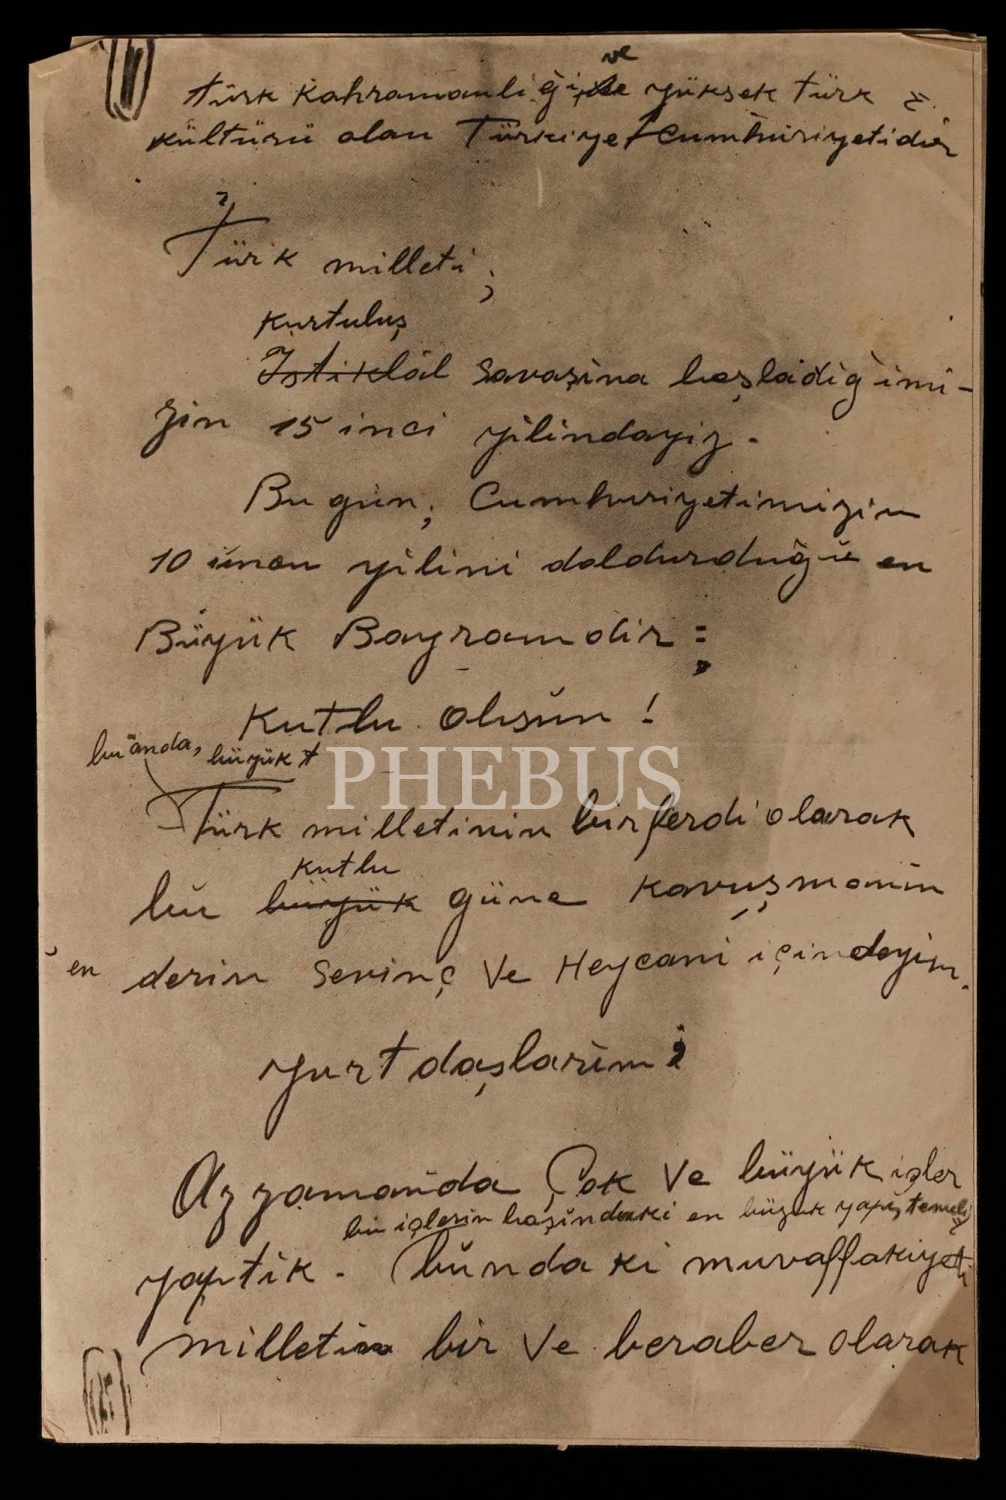 ve
türk kahramanliği, ve yüksek türk
kültürü olan Türkiye Cumhuriyetidir
Türk milleti;
kurtuluş
İstiklâl savaşina başladiğimi-
zin 15 inci yilindayiz.
Bu gün, Cumhuriyetimizin
10 uncu yilini doldurduğu en
Büyük Bayramdir;
Kutlu olsun!
bu anda, büyük t
PHEBUS
Türk milletinin bir ferdi olarak
kutlu
bu büyük güne kavuşmanin
en derin sevinç ve Heycani içindeyim.
yurtdaşlarim;
Az zamanda Çok ve büyük işler
bu işlerin başindaki en büyük
yaptik. bundaki muvaffakiyeti
milletin bir ve beraber olarak